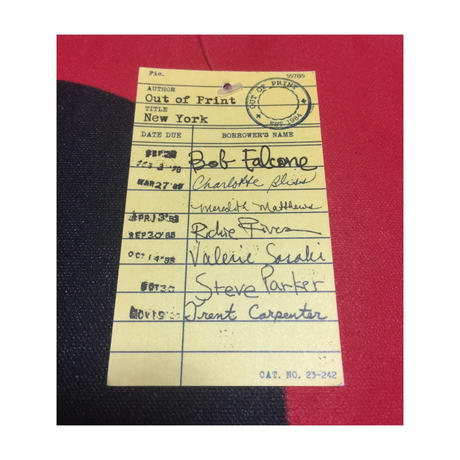 Fic. 55785
AUTHOR
Out of Print
TITLE
New York
OUT OF PRINT
EST. 1984
DATE DUE BORROWER'S NAME
SEP 28 Bob Falcone
MAR 27 Charlotte Bliss
Meredith Matthews
APR 13 Richie Rivera
SEP 30 Valerie Sasaki
OCT 14
OCT 30 Steve Parker
NOV 19 Trent Carpenter
CAT. NO. 23-242